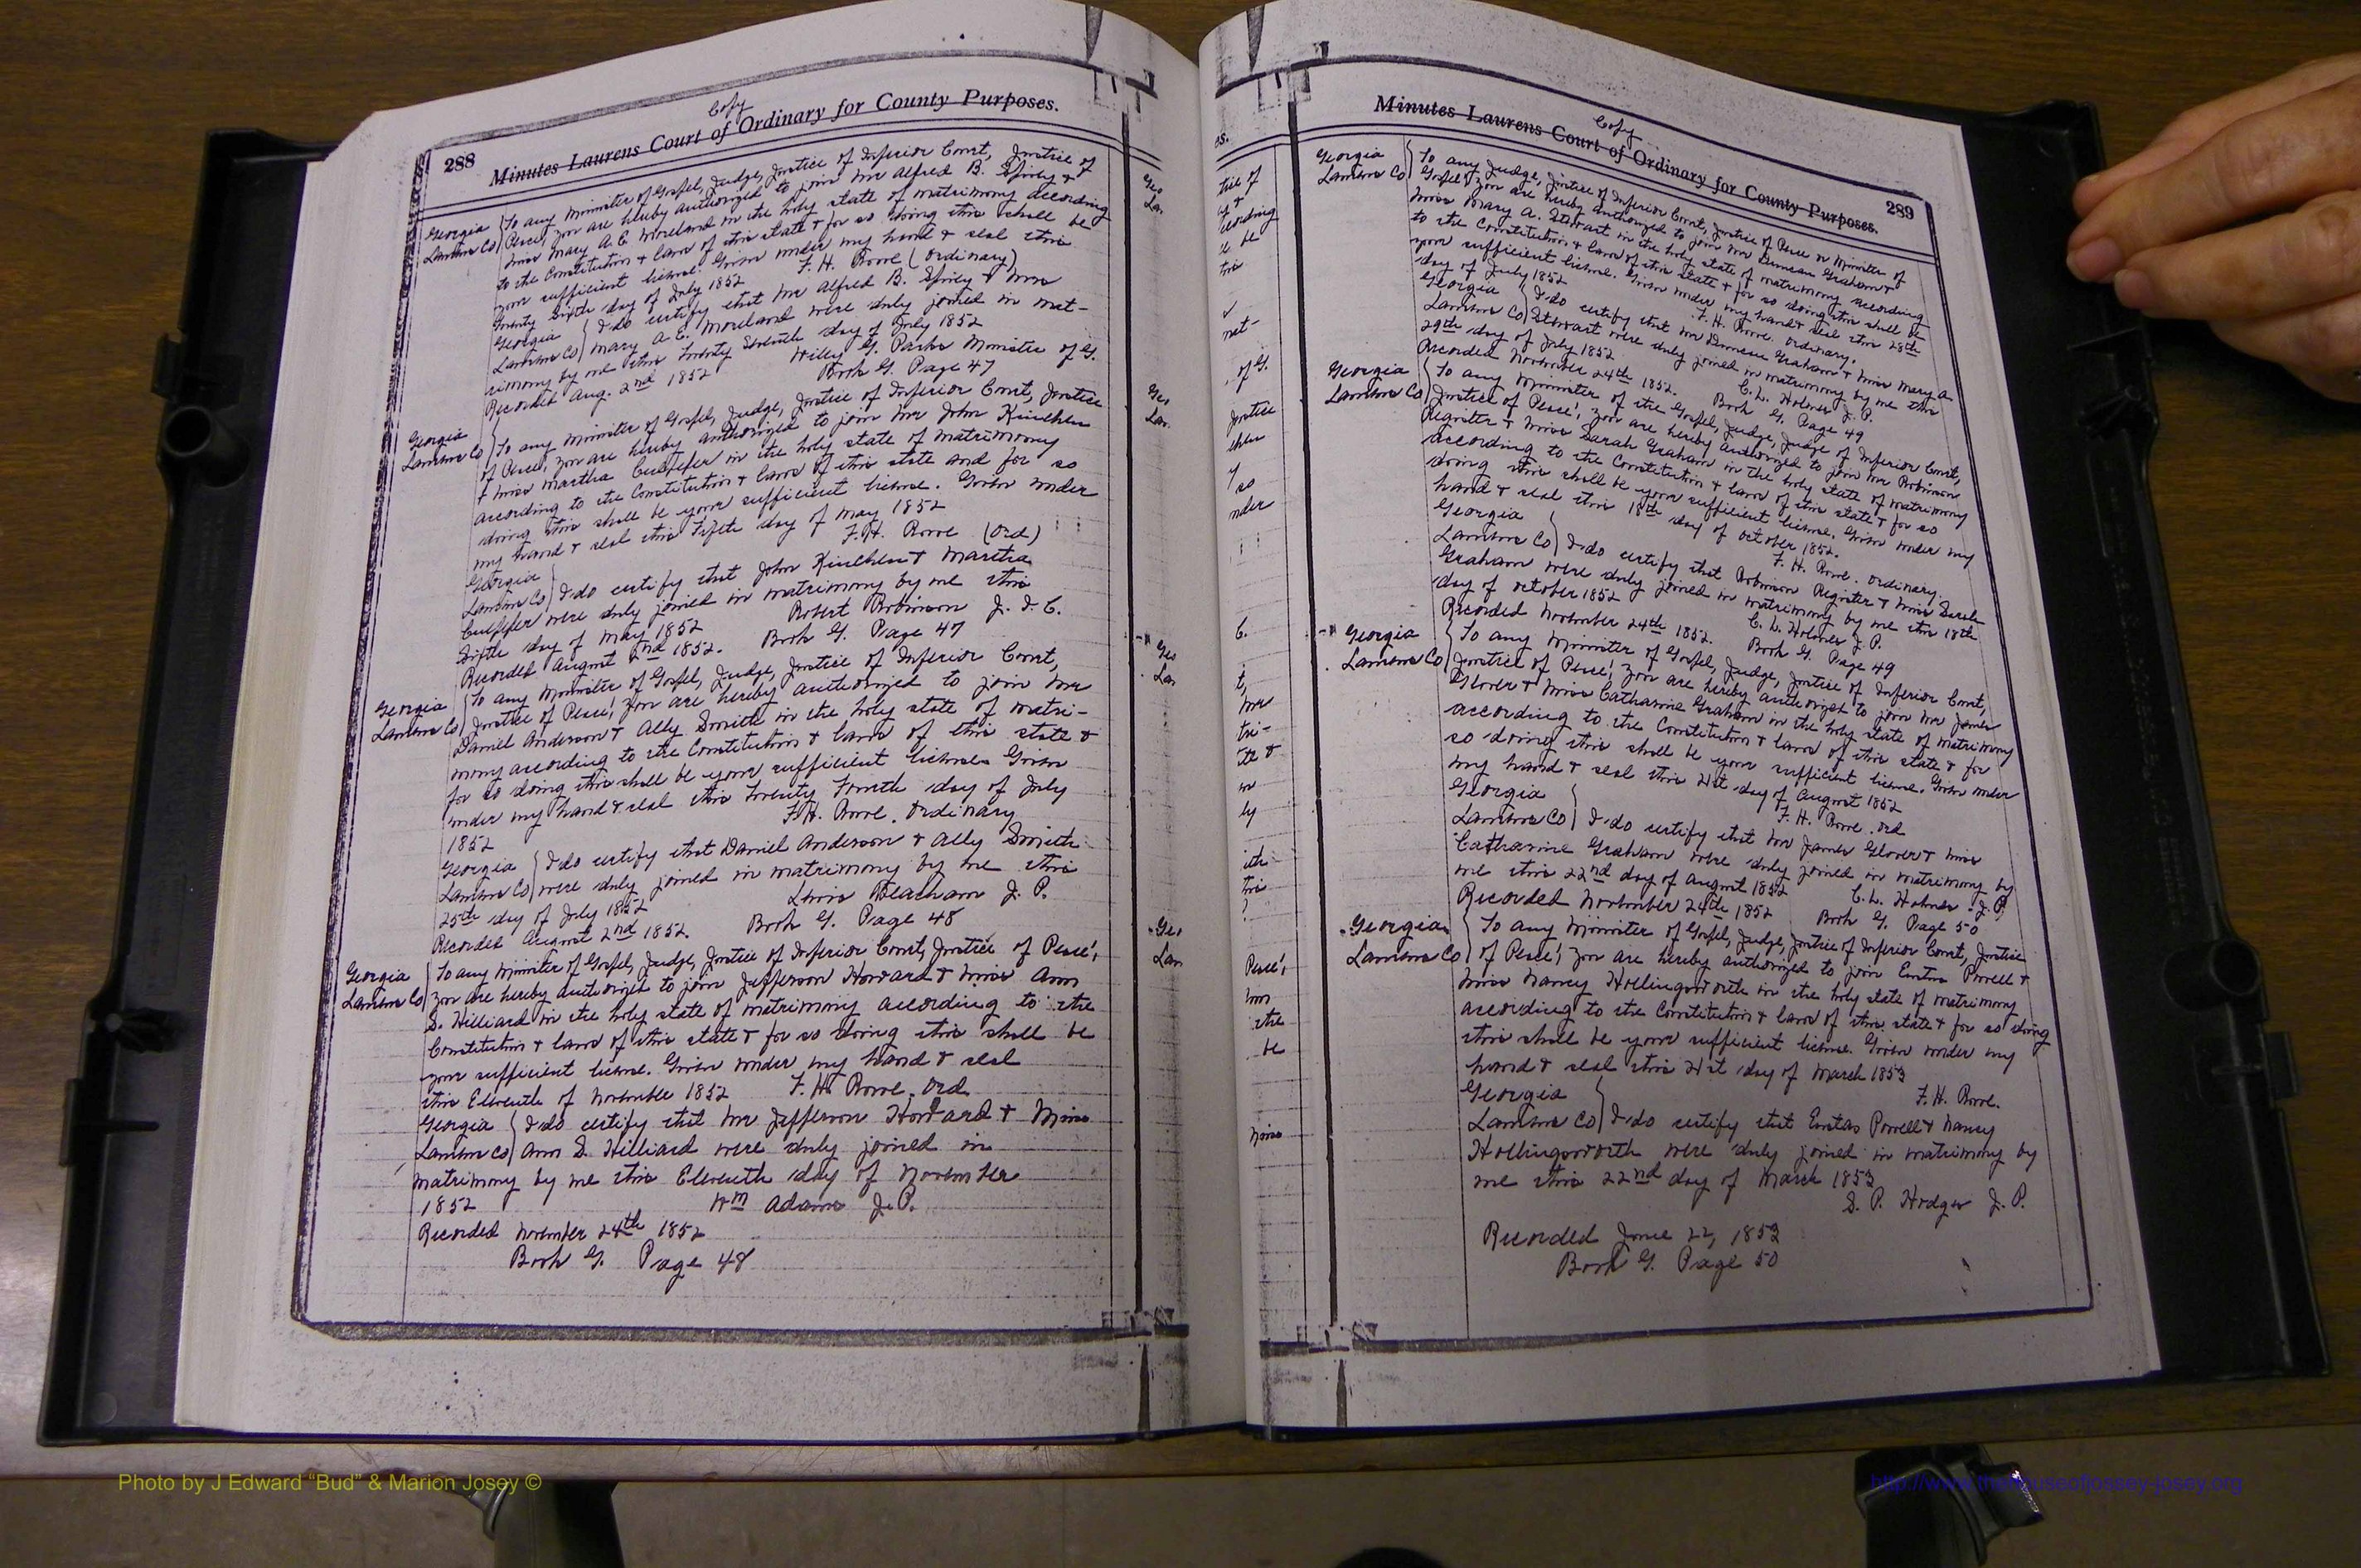 Copy
288 Minutes Laurens Court of Ordinary for County Purposes.
Georgia To any Minister of Gospel, Judge, Justice of Inferior Court, Justice of
Laurens Co Peace, you are hereby authorized to join Mr Alfred B. Spivey &
Miss Mary A. E. Moreland in the holy state of matrimony according
to the Constitution & laws of this state & for so doing this shall be
your sufficient license. Given under my hand & seal this
Twenty Sixth day of July 1852 F. H. Rowe (Ordinary)
Georgia I do certify that Mr Alfred B. Spivey & Miss
Laurens Co Mary A. E. Moreland were duly joined in mat-
rimony by me this Twenty Seventh day of July 1852
Wiley G. Parks Minister of G.
Recorded Aug. 2nd 1852 Book G. Page 47
Georgia To any Minister of Gospel, Judge, Justice of Inferior Court, Justice
Laurens Co of Peace, you are hereby authorized to join Mr John Kinchen
& Miss Martha Culpeper in the holy state of matrimony
according to the Constitution & laws of this state and for so
doing this shall be your sufficient license. Given under
my hand & seal this Fifth day of May 1852
F. H. Rowe (Ord)
Georgia
Laurens Co I do certify that John Kinchen & Martha
Culpeper were duly joined in matrimony by me this
Sixth day of May 1852 Robert Robinson J. I. C.
Recorded August 2nd 1852. Book G. Page 47
Georgia To any Minister of Gospel, Judge, Justice of Inferior Court,
Laurens Co Justice of Peace, you are hereby authorized to join Mr
Daniel Anderson & Ally Smith in the holy state of matri-
mony according to the Constitution & laws of this state &
for so doing this shall be your sufficient license Given
under my hand & seal this Twenty Fourth day of July
1852 F. H. Rowe. Ordinary
Georgia I do certify that Daniel Anderson & Ally Smith
Laurens Co were duly joined in matrimony by me this
25th day of July 1852 Lewis Beacham J. P.
Recorded August 2nd 1852. Book G. Page 48
Georgia To any Minister of Gospel, Judge, Justice of Inferior Court, Justice of Peace,
Laurens Co you are hereby authorized to join Jefferson Howard & Miss Ann
S. Hilliard in the holy state of matrimony according to the
Constitution & laws of this state & for so doing this shall be
your sufficient license. Given under my hand & seal
this Eleventh of November 1852 F. H. Rowe. Ord.
Georgia I do certify that Mr Jefferson Howard & Miss
Laurens Co Ann S. Hilliard were duly joined in
matrimony by me this Eleventh day of November
1852 Wm Adams J. P.
Recorded November 24th 1852
Book G. Page 48
Copy
Minutes Laurens Court of Ordinary for County Purposes. 289
Georgia To any Judge, Justice of Inferior Court, Justice of Peace or Minister of
Laurens Co Gospel, you are hereby authorized to join Mr Duncan Graham &
Miss Mary A. Stewart in the holy state of matrimony according
to the Constitution & laws of this state & for so doing this shall be
your sufficient license. Given under my hand & seal this 28th
day of July 1852 F. H. Rowe. Ordinary.
Georgia I do certify that Mr Duncan Graham & Miss Mary A
Laurens Co Stewart were duly joined in matrimony by me this
29th day of July 1852 C. L. Holmes J. P.
Recorded November 24th 1852. Book G. Page 49
Georgia To any Minister of the Gospel, Judge, Judge of Inferior Court,
Laurens Co Justice of Peace, you are hereby authorized to join Mr Robinson
Register & Miss Sarah Graham in the holy state of matrimony
according to the Constitution & laws of this state & for so
doing this shall be your sufficient license. Given under my
hand & seal this 18th day of October 1852.
Georgia F. H. Rowe. Ordinary.
Laurens Co I do certify that Robinson Register & Miss Sarah
Graham were duly joined in matrimony by me this 18th
day of October 1852 C. L. Holmes J. P.
Recorded November 24th 1852. Book G. Page 49
Georgia To any Minister of Gospel, Judge, Justice of Inferior Court,
Laurens Co Justice of Peace, you are hereby authorized to join Mr James
Glover & Miss Catharine Graham in the holy state of matrimony
according to the Constitution & laws of this state & for
so doing this shall be your sufficient license. Given under
my hand & seal this 21st day of August 1852
Georgia F. H. Rowe. Ord
Laurens Co I do certify that Mr James Glover & Miss
Catharine Graham were duly joined in matrimony by
me this 22nd day of August 1852 C. L. Holmes J. P.
Recorded November 24th 1852 Book G. Page 50
Georgia To any Minister of Gospel, Judge, Justice of Inferior Court, Justice
Laurens Co of Peace, you are hereby authorized to join Eustas Powell &
Miss Nancy Hollingsworth in the holy state of matrimony
according to the Constitution & laws of this state & for so doing
this shall be your sufficient license. Given under my
hand & seal this 21st day of March 1853
Georgia F. H. Rowe.
Laurens Co I do certify that Eustas Powell & Nancy
Hollingsworth were duly joined in matrimony by
me this 22nd day of March 1853
S. P. Hodges J. P.
Recorded June 22, 1853
Book G. Page 50
Photo by J Edward "Bud" & Marion Josey ©
http://www.thehouseofjossey-josey.org